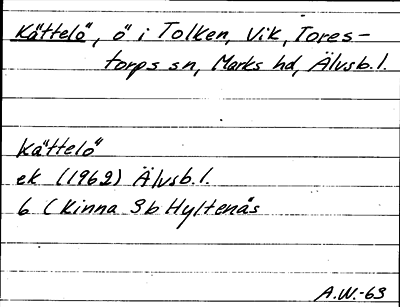 Kättelö, ö i Tolken, Vik, Tores-
torps sn, Marks hd, Älvsb.l.
Kättelö
ek (1962) Älvsb.l.
6 (Kinna 3b Hyltenäs
A.W.-63